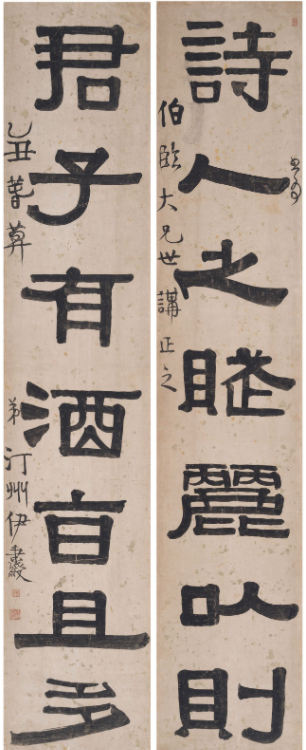 詩人之賦麗以則
伯臨大兄世講正之
君子有酒旨且多
乙丑暮春
弟汀州伊秉綬